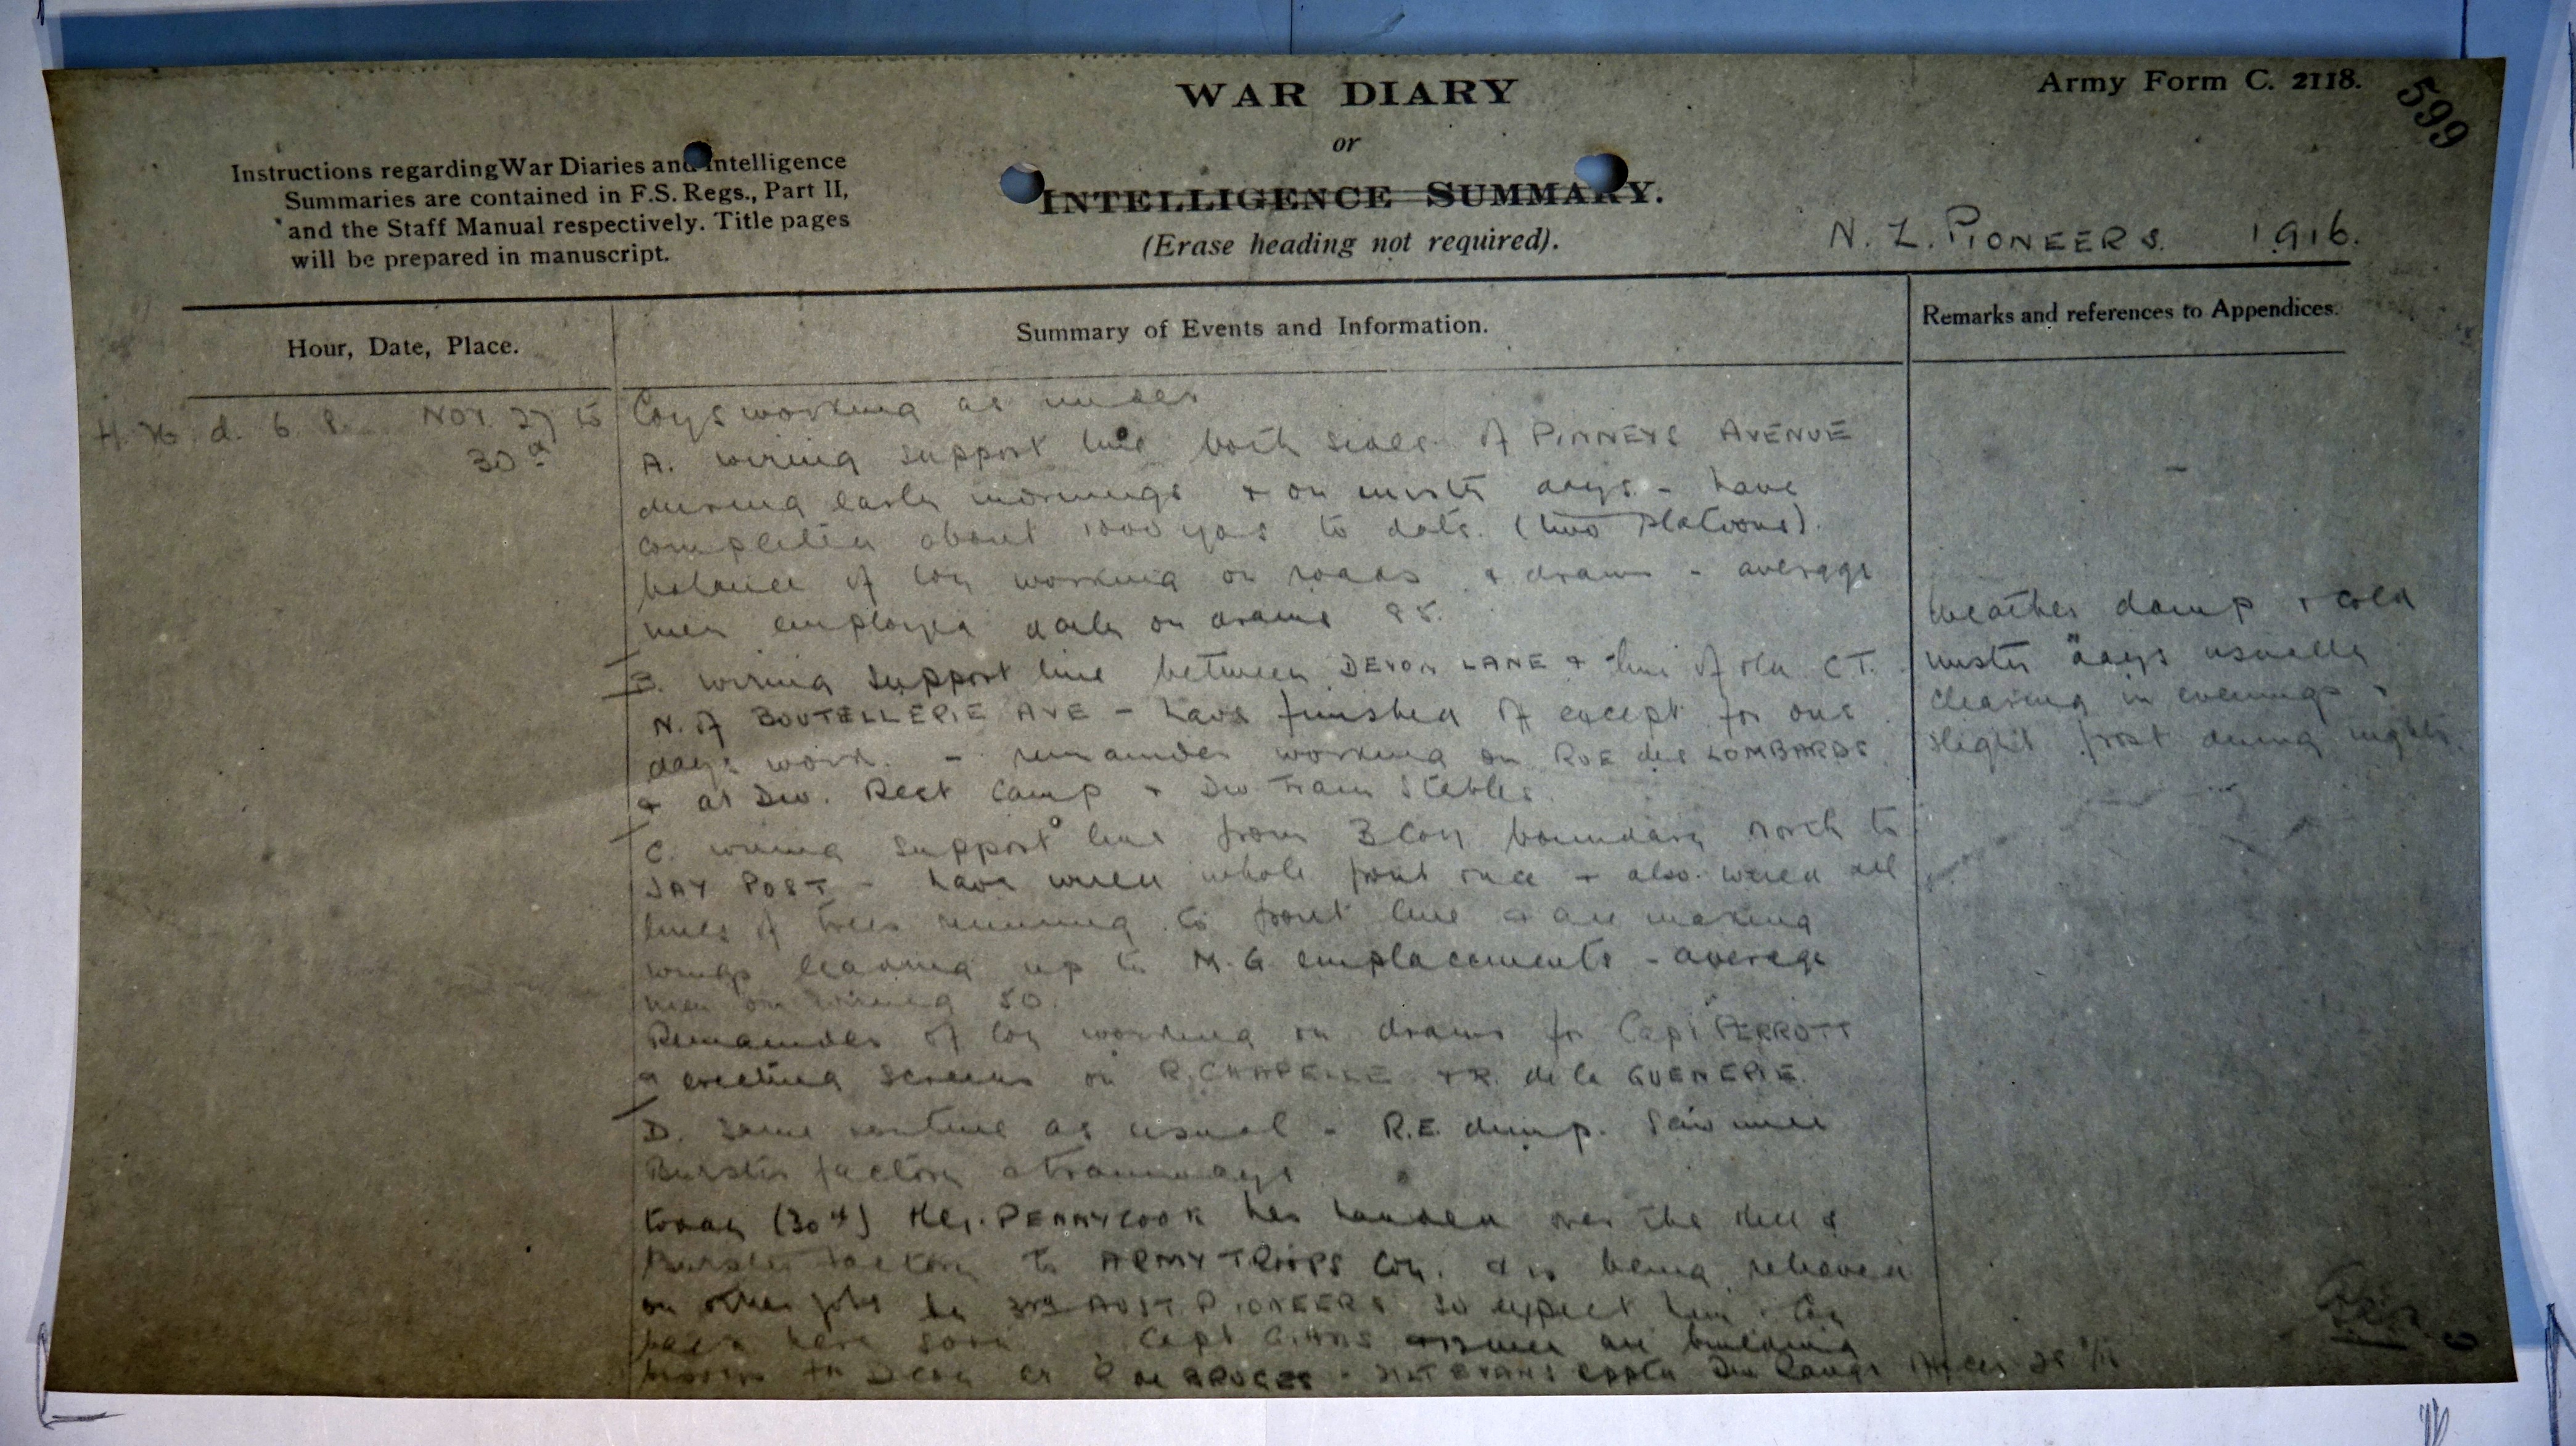 WAR DIARY
or
INTELLIGENCE SUMMARY.
(Erase heading not required).
Army Form C. 2118.
599
Instructions regarding War Diaries and Intelligence
Summaries are contained in F.S. Regs., Part II,
and the Staff Manual respectively. Title pages
will be prepared in manuscript.
N. Z. PIONEERS. 1916.
Hour, Date, Place.
Summary of Events and Information.
Remarks and references to Appendices.
H. 16. d. 6. 8. NOV. 27 to
30th
Coys working as under
A. wiring support line both sides of PINNEYS AVENUE
during early mornings & on misty days - have
completed about 1000 yds to date. (two platoons).
balance of Coy working on roads & drains - average
men employed daily on drains 85.
B. wiring support line between DEVON LANE & line of old C.T.
N. of BOUTELLERIE AVE - have finished off except for one
days work. - remainder working on RUE des LOMBARDS
& at Div. Rest Camp & Div Train Stables.
C. wiring support line from B Coy boundary north to
JAY POST - have wired whole front once & also wired all
lines of trees running to front line & are making
wings leading up to M.G. emplacements - average
men on wiring 50.
Remainder of Coy working on drains for Capt PERROTT
& erecting screens on R. CHAPELLE & R. de la GUENERIE.
D. Same routine as usual - R.E. dump. Saw mill
Burster factory & tramways
today (30th) Mr. PENNYCOOK has handed over the mill &
Burster factory to ARMY TROOPS Coy. & is being relieved
on other jobs by 3rd AUST PIONEERS so expect him & Coy
back here soon. Capt are building
for D Coy at R de BRUGES - EVANS apptd Div
Weather damp & cold
misty days usually
clearing in evenings &
slight frost during nights.